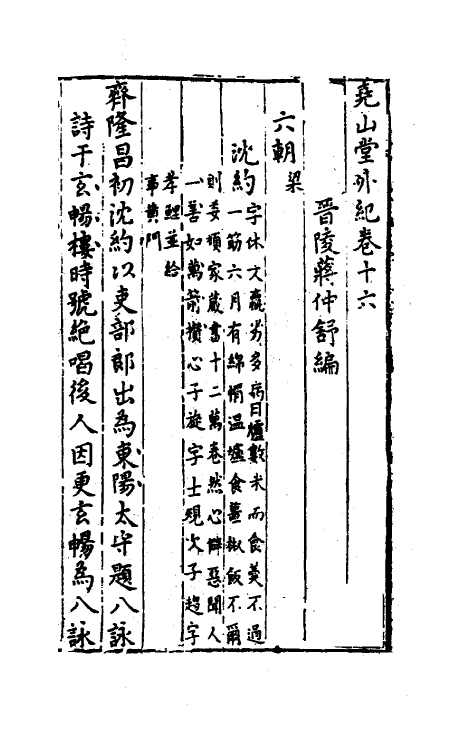 堯山堂外紀卷十六
晉陵蔣仲舒編
六朝 梁
沈約 字休文羸劣多病日爐數米而食羹不過
一筯六月有綿帽溫爐食薑椒飯不爾
則委頓家藏書十二萬卷然心僻惡聞人
一善如萬箭攢心子旋字士規次子趨字
孝鯉並給
事黃門
齊隆昌初沈約以吏部郎出為東陽太守題八詠
詩于玄暢樓時號絕唱後人因更玄暢為八詠